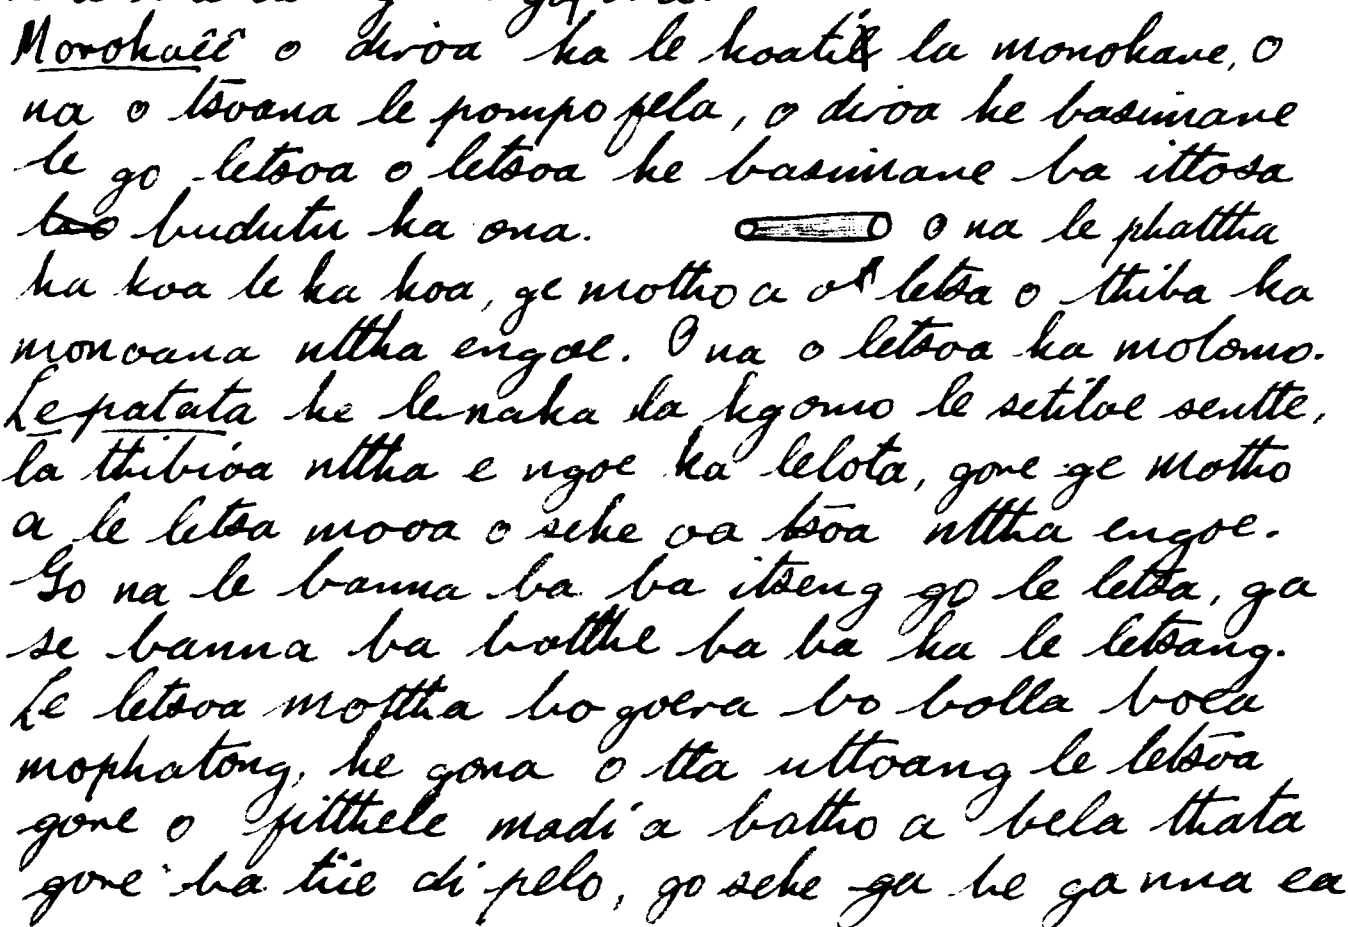 Morokuêê o diroa ka le koatil la monokane, o
na o tsoana le pompo fela, o diroa ke basimane
le go letsoa o letsoa ke basimane ba ittosa
budutu ka ona. O na le phattha
ka koa le ka koa, ge motho a o letsa o thiba ka
monoana nttha engoe. O na o letsoa ka molomo.
Lepatata ke lenaka la kgomo le setiloe sentte,
la thibioa nttha e ngoe ka lelota, gore ge motho
a le letsa mooa o seke oa tsoa nttha engoe.
Go na le banna ba ba itseng go le letsa, ga
se banna ba botthe ba ba ka le letsang.
Le letsoa mottha bo goera bo bolla boea
mophatong, ke gona o tta uttoang le letsoa
gore o fitthele madi a batho a bela thata
gore ba tiie di pelo, go seke ga ke ganna ea